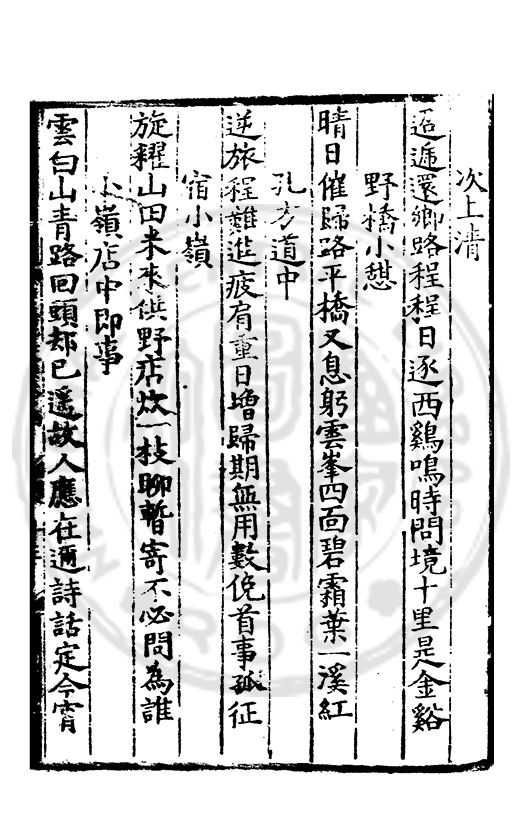 次上清
迢遞還鄉路程程日逐西鷄鳴時問境十里是金谿
野橋小憇
晴日催歸路平橋又息躬雲峯四面碧霜葉一溪紅
孔方道中
逆旅程難進疲肩重日増歸期無用數俛首事孤征
宿小嶺
旋糴山田米來供野店炊一枝聊暫寄不必問為誰
小嶺店中即事
雲白山青路回頭却已遥故人應在邇詩話定今宵